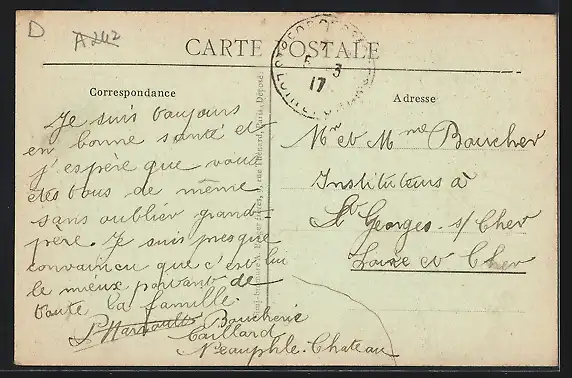 D
A242
CARTE POSTALE
Correspondance
Adresse
Je suis toujours
en bonne santé et
j'espère que vous
êtes tous de même
sans oublier grand-
père. Je suis presque
convaincu que c'est lui
le mieux portant de
toute la famille.
Boucherie
Gaillard
Neauphle-Chateau
Mr et Mme Boucher
Instituteurs à
St Georges s/ Cher
Loire et Cher
5 3
17